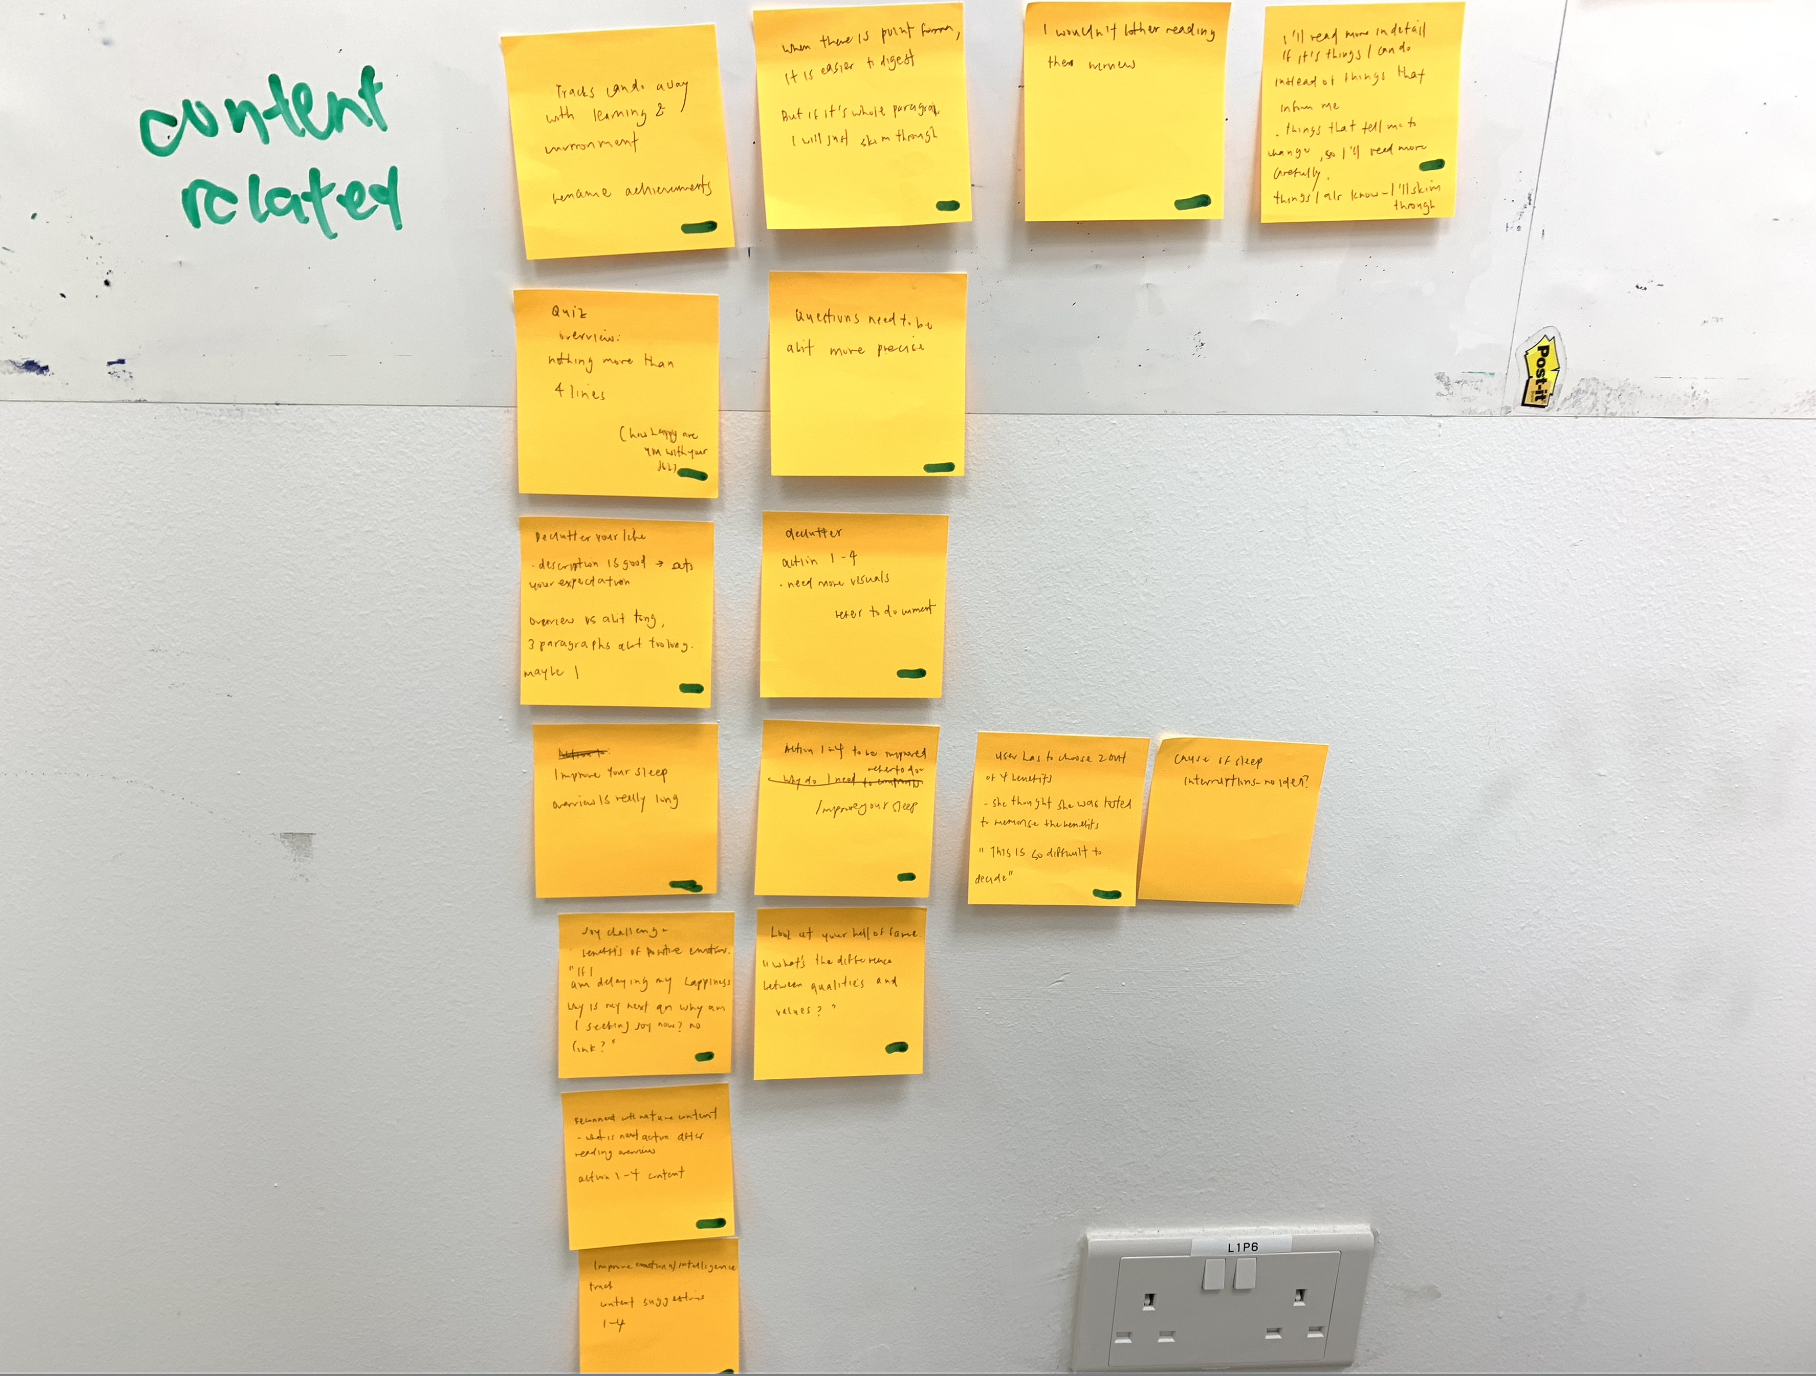 content
related
Tracks can do away
with learning &
environment
rename achievements
when there is point form,
it is easier to digest
But if it's whole paragraph
I will just skim through
I wouldn't bother reading
the overview
I'll read more in detail
if it's things I can do
instead of things that
inform me
- things that tell me to
change, so I'll read more
carefully.
things I alr know - I'll skim
through
Quiz
overview:
nothing more than
4 lines
(how happy are
you with your
job)
Questions need to be
abit more precise
Post-it
Declutter your life
- description is good → sets
your expectation
overview is abit long,
3 paragraphs abit too long.
maybe 1
declutter
action 1-4
- need more visuals
refer to document
Improve your sleep
overview is really long
Action 1-4 to be improved
refer to doc
why do I need to
Improve your sleep
User has to choose 2 out
of 4 benefits
- she thought she was tested
to memorise the benefits
"This is so difficult to
decide"
Cause of sleep
interruptions - no idea?
Joy challenge
benefits of positive emotions.
"If I
am delaying my happiness
why is my next qn why am
I seeking joy now? no
link?"
Look at your hall of fame
"what's the difference
between qualities and
values?"
Reconnect with nature content
- what is next action after
reading overview
action 1-4 content
Improve emotional intelligence
track
content suggestions
1-4
L1P6